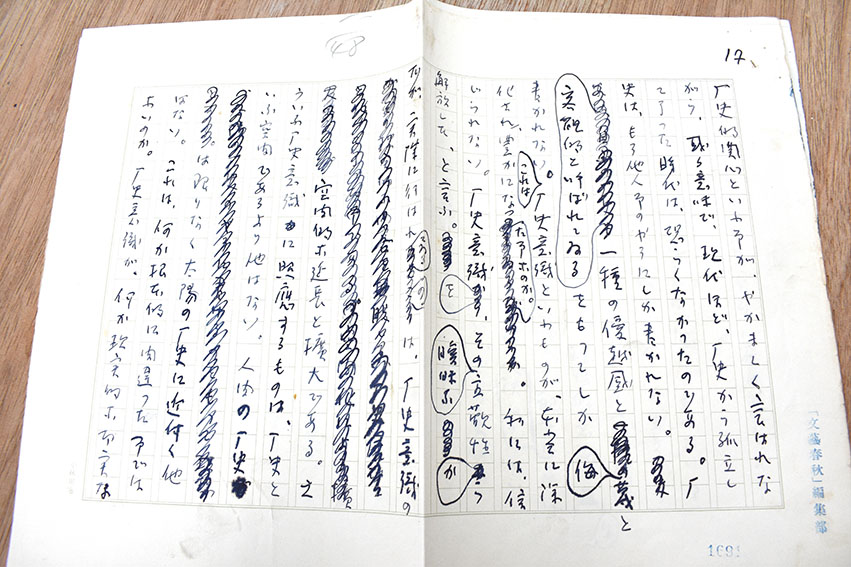 17
48
厂史的関心といふ事が、やかましく言はれな
がら、或る意味で、現代ほど、厂史から孤立し
て了つた時代は、恐らくなかつたのである。厂
史は、もう他人事のやうにしか書かれない。
一種の優越感と侮蔑と
をもつてしか
書かれない。厂史意識といふものが、本当に深
化され、豊かになつ
これは
私には、信
じられない。厂史意識
解放した、と言ふ。
を
曖昧な
か
だが、実際に行はれてゐるのは、厂史意識の
空間的な延長と擴大である。さ
ういふ厂史意識に照應するものは、厂史と
いふ空間であるより他はない。人間の厂史
は限りなく太陽の厂史に近付く他
はない。これは、何か根本的に間違つた事では
ないのか。厂史意識が、何か現実的な
「文藝春秋」編集部